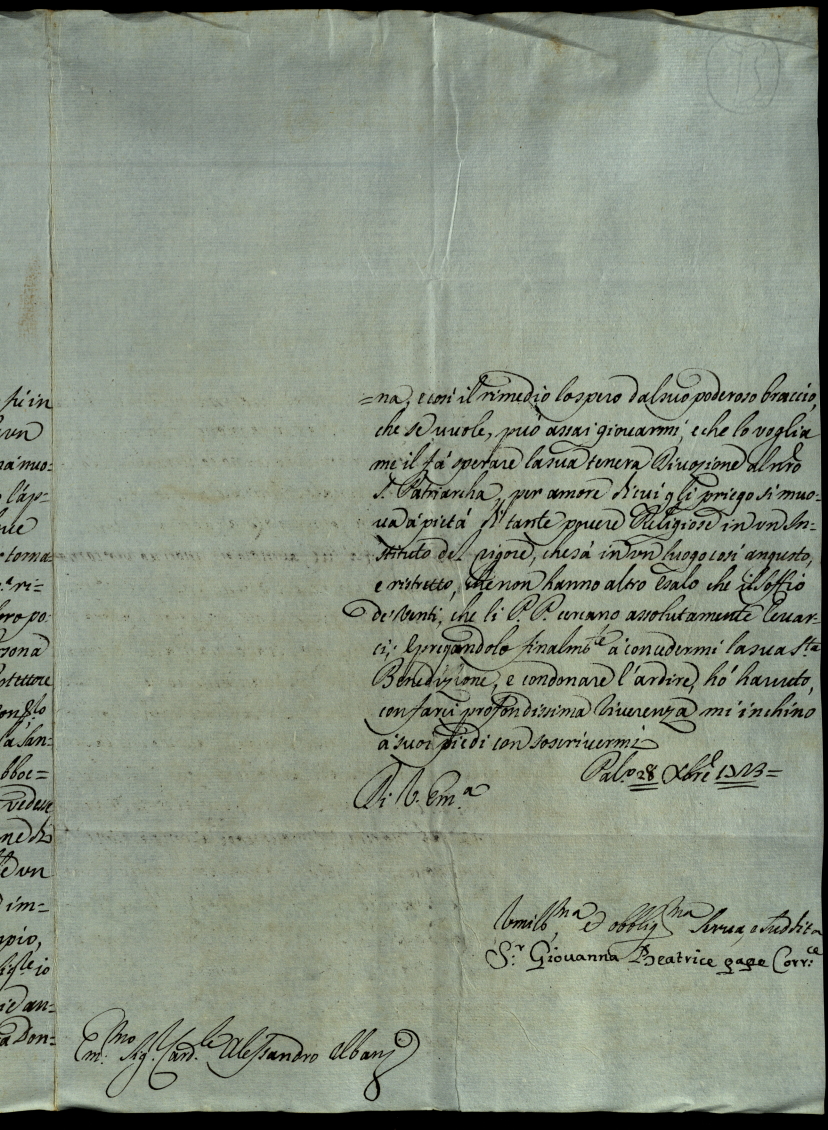 fi in
un
nuo-
l'ap-
toma-
ri-
loro po:
rsona
otettore
la San-
bboc=
vedesse
ne di
un
im-
mpio,
io
an-
a Don-
=na, e così il rimedio lo spero dal suo poderoso braccio,
che se vuole, può assai giovarmi, e che lo voglia
me il fà sperare la sua tenera Divozione al nrõ
S. Patriarcha, per amore di cui gli priego si muo-
va à pietà di tante povere Religiose in un In-
stituto del rigore, che sà in un luogo così angusto,
e ristretto, che non hanno altro esalo che il soffio
de' Venti, che li P.P. cercano assolutamente levar-
ci; e pregandolo finalm.te à concedermi la sua S.ta
Benedizione, e condonare l'ardire, hò havuto,
con farci profondissima riverenza mi inchino
à suoi piedi con soscrivermi
Pal.o 28 Xbre
Di V. Em.a
Umil.ma ed obblig.ma Serva, e Suddita
S.r Giovanna Beatrice gage Corr.ce
Em.mo Sig. Card.le Alessandro Albani